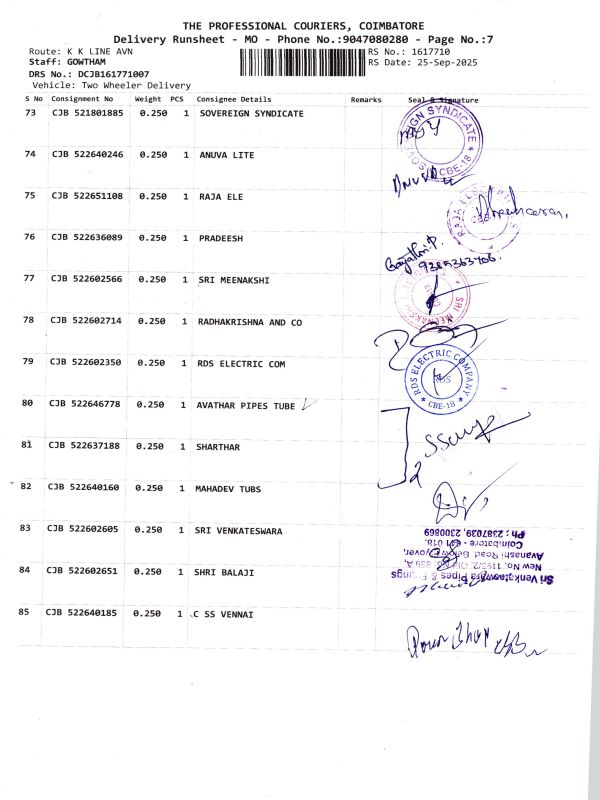 THE PROFESSIONAL COURIERS, COIMBATORE
Delivery Runsheet - MO - Phone No.:9047080280 - Page No.:7
Route: K K LINE AVN RS No.: 1617710
Staff: GOWTHAM RS Date: 25-Sep-2025
DRS No.: DCJB161771007
Vehicle: Two Wheeler Delivery
S No Consignment No Weight PCS Consignee Details Remarks Seal & Signature
73 CJB 521801885 0.250 1 SOVEREIGN SYNDICATE
SYNDICATE
CBE-18
74 CJB 522640246 0.250 1 ANUVA LITE
75 CJB 522651108 0.250 1 RAJA ELE
76 CJB 522636089 0.250 1 PRADEESH
Gayathri.P.
9385363706.
77 CJB 522602566 0.250 1 SRI MEENAKSHI
78 CJB 522602714 0.250 1 RADHAKRISHNA AND CO
79 CJB 522602350 0.250 1 RDS ELECTRIC COM
RDS ELECTRIC COMPANY
RDS
CBE-18
80 CJB 522646778 0.250 1 AVATHAR PIPES TUBE
81 CJB 522637188 0.250 1 SHARTHAR
2
82 CJB 522640160 0.250 1 MAHADEV TUBS
83 CJB 522602605 0.250 1 SRI VENKATESWARA
Sri Venkateswara Pipes & Fittings
New No. 1195/2, Old No. 859 A,
Avanashi Road, Below
Coimbatore - 641 018.
Ph : 2387039, 2300869
84 CJB 522602651 0.250 1 SHRI BALAJI
85 CJB 522640185 0.250 1 C SS VENNAI